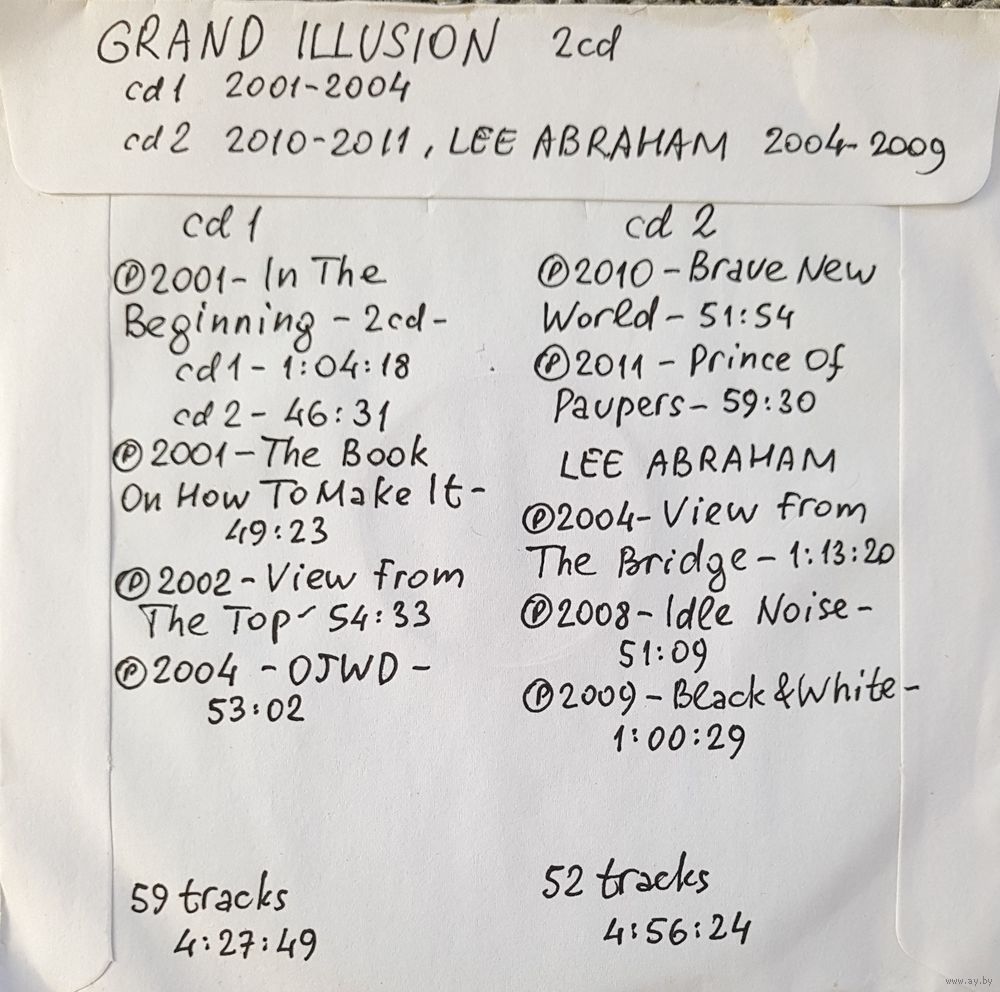 GRAND ILLUSION 2cd
cd 1 2001-2004
cd 2 2010-2011, LEE ABRAHAM 2004-2009
cd 1
Ⓟ2001- In The
Beginning - 2cd-
cd 1 - 1:04:18
cd 2 - 46:31
Ⓟ2001-The Book
On How To Make It-
49:23
Ⓟ2002-View from
The Top- 54:33
Ⓟ2004 - OJWD -
53:02
59 tracks
4:27:49
cd 2
Ⓟ2010-Brave New
World- 51:54
Ⓟ2011 - Prince Of
Paupers- 59:30
LEE ABRAHAM
Ⓟ2004-View from
The Bridge-1:13:20
Ⓟ2008-Idle Noise-
51:09
Ⓟ2009-Black&White-
1:00:29
52 tracks
4:56:24
www.ay.by